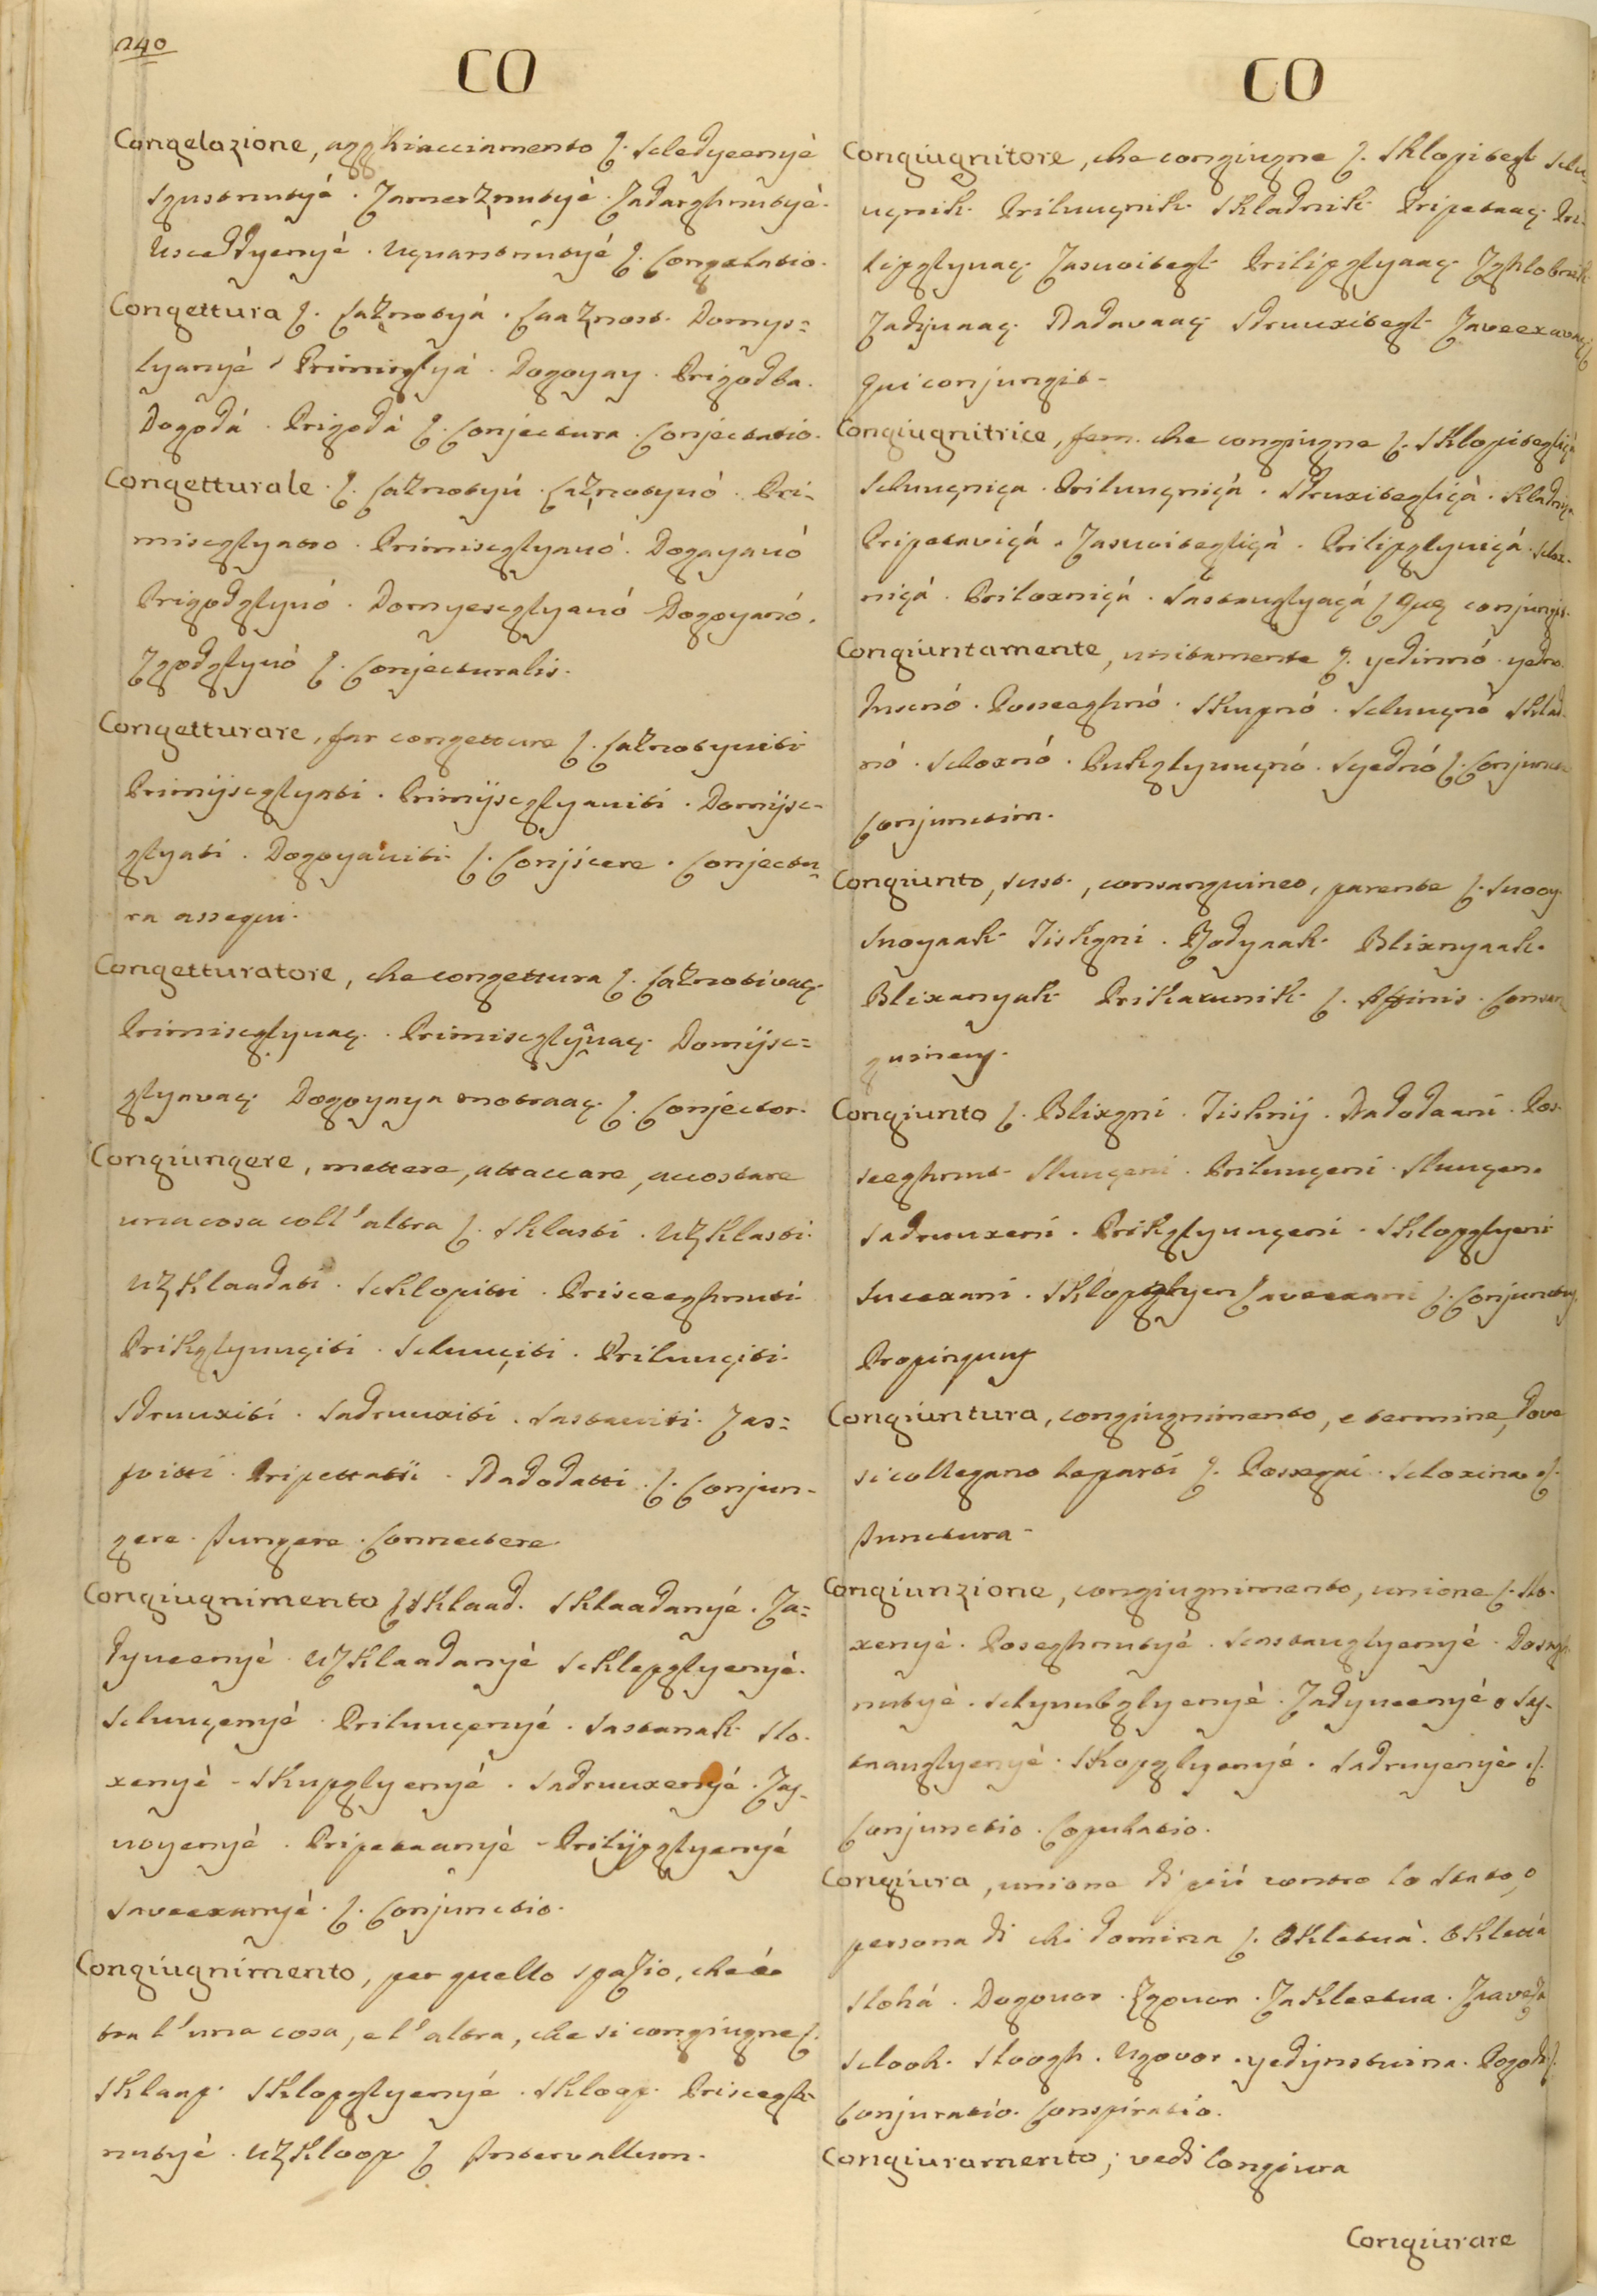 240
CO
Congelazione, agghiacciamento ſ. Scledyeenyè
Sgustnutyé. Zamerznutyè. Zadarghnutyè.
Usceddyenyè. Uquarstnutyé ſ. Congelatio.
Congettura ſ. Saznotyá. Saaznost. Domys=
lyanyè. Primisglyá. Dogoyay. Prigodba.
Dogodá. Prigodá ſ. Conjectura. Conjectatio.
Congetturale. ſ. Saznotyú. Saznotynó. Pri-
miseglyatno. Primiseglyauó. Dogayauó
Prigodglynó. Domyeseglyauó Dogoyanó.
Zgodglynó ſ. Conjecturalis.
Congetturare, far congetture ſ. Saznotyuiti
Primijseglyati. Primijseglyauiti. Domijse=
glyati. Dogoyauiti ſ. Conjicere. Conjectu=
ra assequi.
Congetturatore, che congettura ſ. Saznotivaç.
Primiseglyuaç. Primiseglyauaç. Domijse=
glyavaç. Dogoyaya motraaç. ſ. Conjector.
Congiungere, mettere, attaccare, accostare
una cosa coll'altra ſ. Sklasti. Uzklasti.
Uzklaadati. Scklopitti. Prisceeghnuti
Prikglyuuçiti. Scluuçiti. Priluuçiti.
Sdruuxiti. Sadruuxiti. Sastauiti. Zas=
voitti. Pripettatti. Nadodatti. ſ. Conjun-
gere. Jungere. Connectere.
Congiugnimento ſ. Sklaad. Sklaadanyé. Za=
dyuceenyè. Uzklaadanyè Scklopglyenyè.
Scluuçenyè. Priluuçenyé. Sastanak Slo-
xenyè. Skupglyenyé. Sadruuxenyé. Zas-
uoyenyè. Pripetaanyè. Prilijpglyenyé
Saveexanyé. ſ. Conjunctio.
Congiugnimento, per quello spazio, che è
tra l'una cosa, e l'altra, che si congiugne ſ.
Sklaap. Sklopglyenyé. Skloop. Prisceegh-
nutyè. Uzkloop ſ Intervallum.
CO
Congiugnitore, che congiugne ſ. Sklopitegl Sclu-
uçnik. Priluuçnik. Skladnik Pripetaaç. Pri-
lipglyuaç. Zasuoitegl. Prilipglyaaç. Zghlobnik
Zadijuaaç. Nadavaaç. Sdruuxitegl. Zaveexavaç ſ
Qui conjungit.
Congiugnitrice, fem. che congiugne ſ. Sklopitegliça
Scluuçniça. Priluuçniçá. Sdruxitegliçà. Skladniça
Pripetaviçá. Zasuoitegliçà. Prilipglyuiçá. Sclox-
niçá. Priloxniçá. Sastauglyaçá ſ Quę conjungit.
Congiuntamente, unitamente ſ. yedinnó. yedno.
Jnscnó. Possceeghnó. Skupnó. Scluuçnó Sklad-
nó. Scloxnó. Prikglyuuçnó. Syednó ſ. Conjuncte
Conjunctim.
Congiunto, sust., consanguineo, parente ſ. Suooy.
Suoyaak. Tiskgni. Rodyaak. Blixnyaak.
Blixanyak. Prikaxunik. ſ. Affinis. Consan-
guineus.
Congiunto ſ. Blixgni. Tisknij. Nadodaani. Pos-
sceeghnut. Sluuçeni. Priluuçeni. Sluuçen.
Sadruuxeni. Prikglyuuçeni. Sklopglyeni
Sueexani. Sklopglyen Zaveexani ſ. Conjunctus.
Propinquus
Congiuntura, congiugnimento, e termine, dove
si collegano le parti ſ. Possegai. Scloxina ſ.
Junctura.
Congiunzione, congiugnimento, unione ſ. Slo-
xenyè. Poseghnutyé. Scastauglyenyè. Dosegh-
nutyè. Sclyuubglyenyè. Zadyuceenyé. Sas-
tauuglyenyè. Skopglyenyé. Sadruyenyè. ſ.
Conjunctio. Copulatio.
Congiura, unione di più contro lo stato, o
persona di chi domina ſ. Okletuà. Okletiá
Slohá. Dogouor. Zgouor. Zakleetua. Zaveza
Sclook. Sloogh. Ugovor. yedijnstuina. Pogodi ſ.
Conjuratio. Conspiratio.
Congiuramento; vedi Congiura
Congiurare